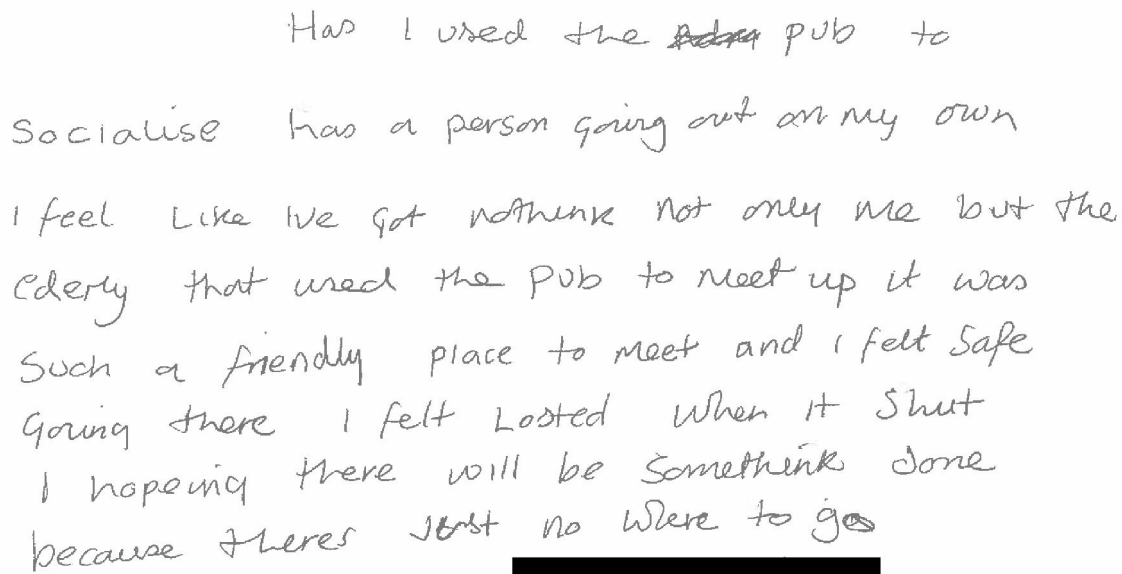 Has I used the pub to
Socialise has a person going out on my own
I feel Like Ive got nothink not only me but the
ederly that used the pub to meet up it was
Such a friendly place to meet and I felt Safe
going there I felt Losted when it Shut
I hopeing there will be Somethink done
because theres Just no where to go